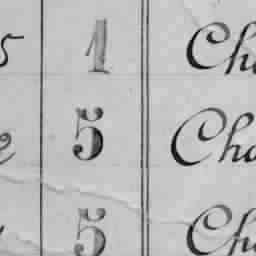 5 1 Cha
2 5 Cha
5 Cha